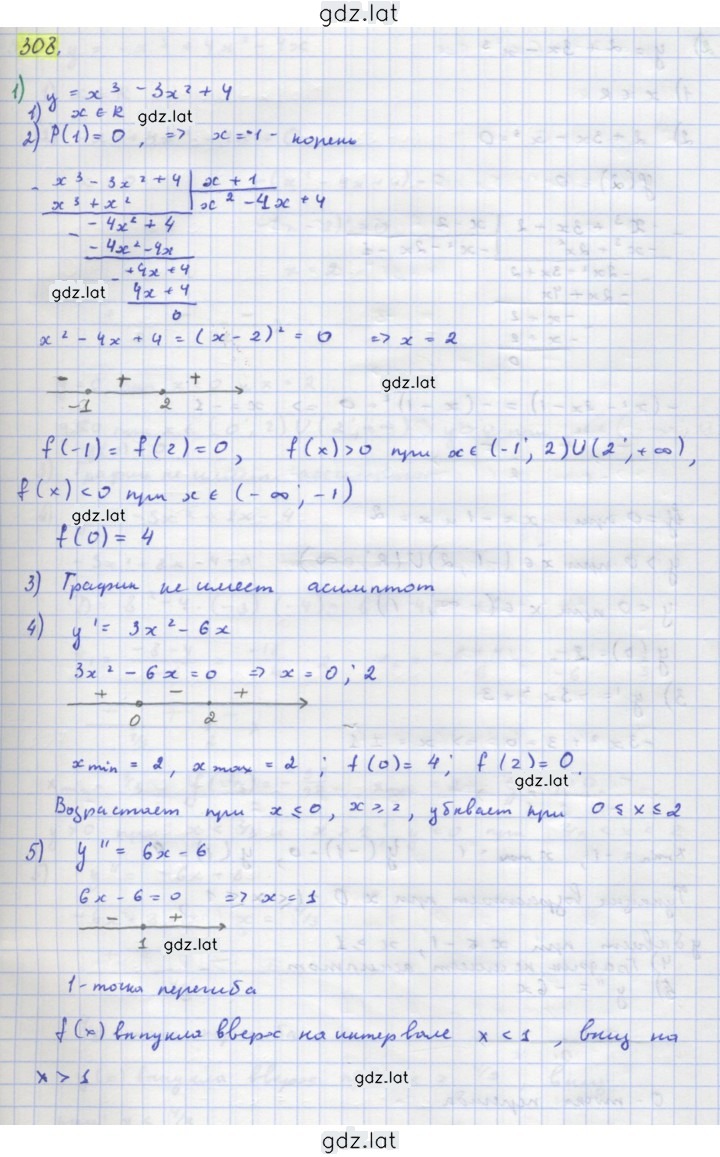 gdz.lat
308.
1) y = x³ - 3x² + 4
1) x ∈ R gdz.lat
2) P(1) = 0, => x = -1 - корень
- x³ - 3x² + 4 | x + 1
x³ + x² | x² - 4x + 4
- - 4x² + 4
- 4x² - 4x
- +4x + 4
gdz.lat 4x + 4
0
x² - 4x + 4 = (x - 2)² = 0 => x = 2
- + +
gdz.lat
-1 2
f(-1) = f(2) = 0, f(x) > 0 при x ∈ (-1; 2) U (2; +∞),
f(x) < 0 при x ∈ (-∞; -1)
gdz.lat
f(0) = 4
3) График не имеет асимптот
4) y' = 3x² - 6x
3x² - 6x = 0 => x = 0; 2
+ - +
0 2
x min = 2, x max = 2 ; f(0) = 4; f(2) = 0.
gdz.lat
Возрастает при x ≤ 0, x ≥ 2, убивает при 0 ≤ x ≤ 2
5) y'' = 6x - 6
6x - 6 = 0 => x = 1
- +
1 gdz.lat
1 - точка перегиба
f(x) выпукла вверх на интервале x < 1, вниз на
x > 1 gdz.lat
gdz.lat